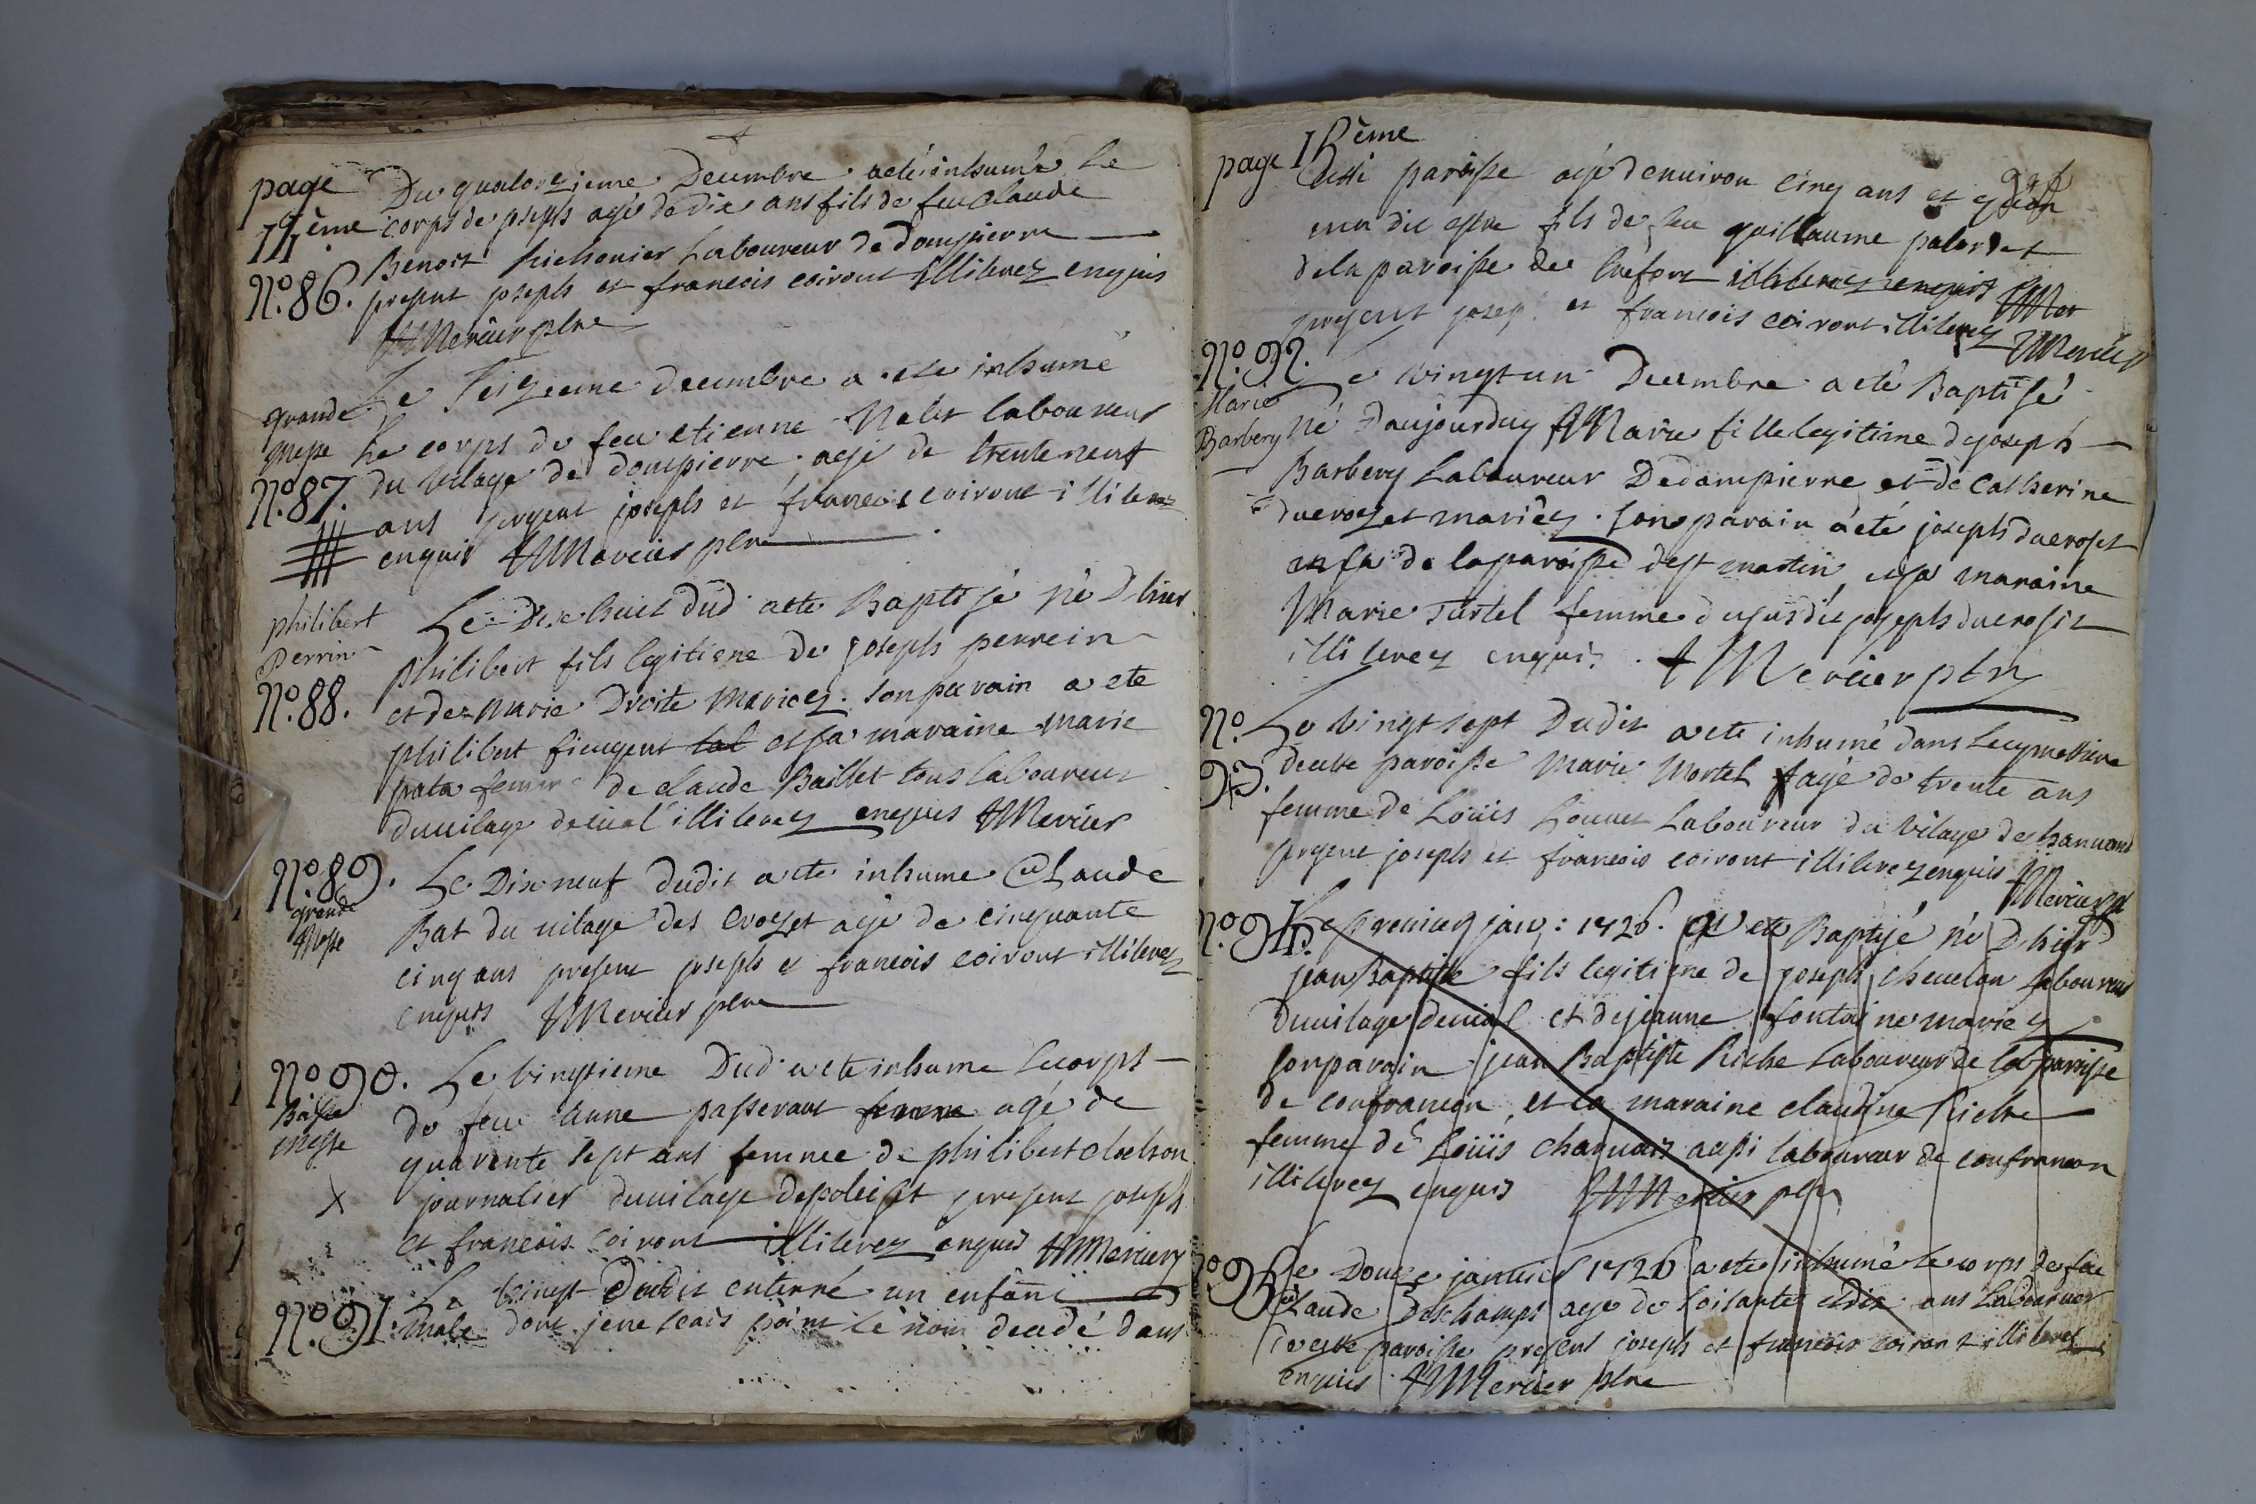 page
ème
N.º 86.
Du quatorzieme Decembre a été inhumé Le
corps de joseph agé de dix ans fils de feu claude
Benoit Richonier Laboureur de dompierre
present joseph et francois coiront illiterez enquis
Mercier ptre
grande
messe
N.º 87.
Le seizieme decembre a ete inhumé
Le corps de feu etienne laboureur
du vilage de dompierre agé de trente neuf
ans present joseph et francois coiront illiterez
enquis Mercier ptre
philibert
perrin
N.º 88.
Le Dixe huit dud a ete Baptisé né D'hier
philibert fils legitime de joseph perrein
et de marie Droite mariez. son parain a ete
philibert fieugent et sa maraine marie
pata femme de claude Baillet tous laboureur
du vilage illiterez enquis Mercier
N.º 89.
grande
Messe
Le Dixneuf dudit a ete inhume Claude
Bat du vilage des crozet agé de cinquante
cinq ans present joseph et francois coiront illiterez
enquis Mercier ptre
N.º 90.
Basse
messe
Le vingtieme Dud a ete inhume Le corps
de feu Anne passerant femme agé de
quarente sept ans femme de philibert chelson
journalier du vilage present joseph
et francois Coiront illiterez enquis Mercier
N.º 91.
Le vingt Dudit enterré un enfant
male dont je ne scais point le nom decedé dans
page ème
Cette paroisse agé d'environ cinq ans et que l'on
m'a dit estre fils de feu guillaume
de la paroisse de illiterez enquis
present josep et francois coiront illiterez Mercier
N.º 92.
Marie
Barbery
Le vingt un Decembre a eté Baptisé
né D'aujourduy Marie fille legitime de joseph
Barbery Laboureur De dampierre et de Catherine
ducrozet mariez. son parain a été joseph ducroset
de la paroisse de st martin et sa maraine
Marie Turtel femme du susdit joseph ducroset
illiterez enquis. Mercier ptre
N.º
93.
Le vingt sept Dudit a ete inhumé dans Le cymetiere
de cette paroisse Marie Mortel agé de trente ans
femme de Loüis Louvet Laboureur du vilage de
present joseph et francois coiront illiterez enquis
Mercier
N.º 94.
Le premier janv : 1726. a ete Baptisé né D'hier
jean Baptiste fils legitime de joseph chevelon Laboureur
du vilage et de jeanne fontaine mariez
son parain jean Baptiste Riche Laboureur de la paroisse
de confrancon, et la maraine claudine Riche
femme de Loüis aussi laboureur de confrancon
illiterez enquis Mercier ptre
N.º 95.
Le Douze janvier 1726 a ete inhumé Le corps de feu
Claude Deschamps agé de soisante et dix ans Laboureur
de cette paroisse present joseph et francois coiront illiterez
enquis Mercier ptre